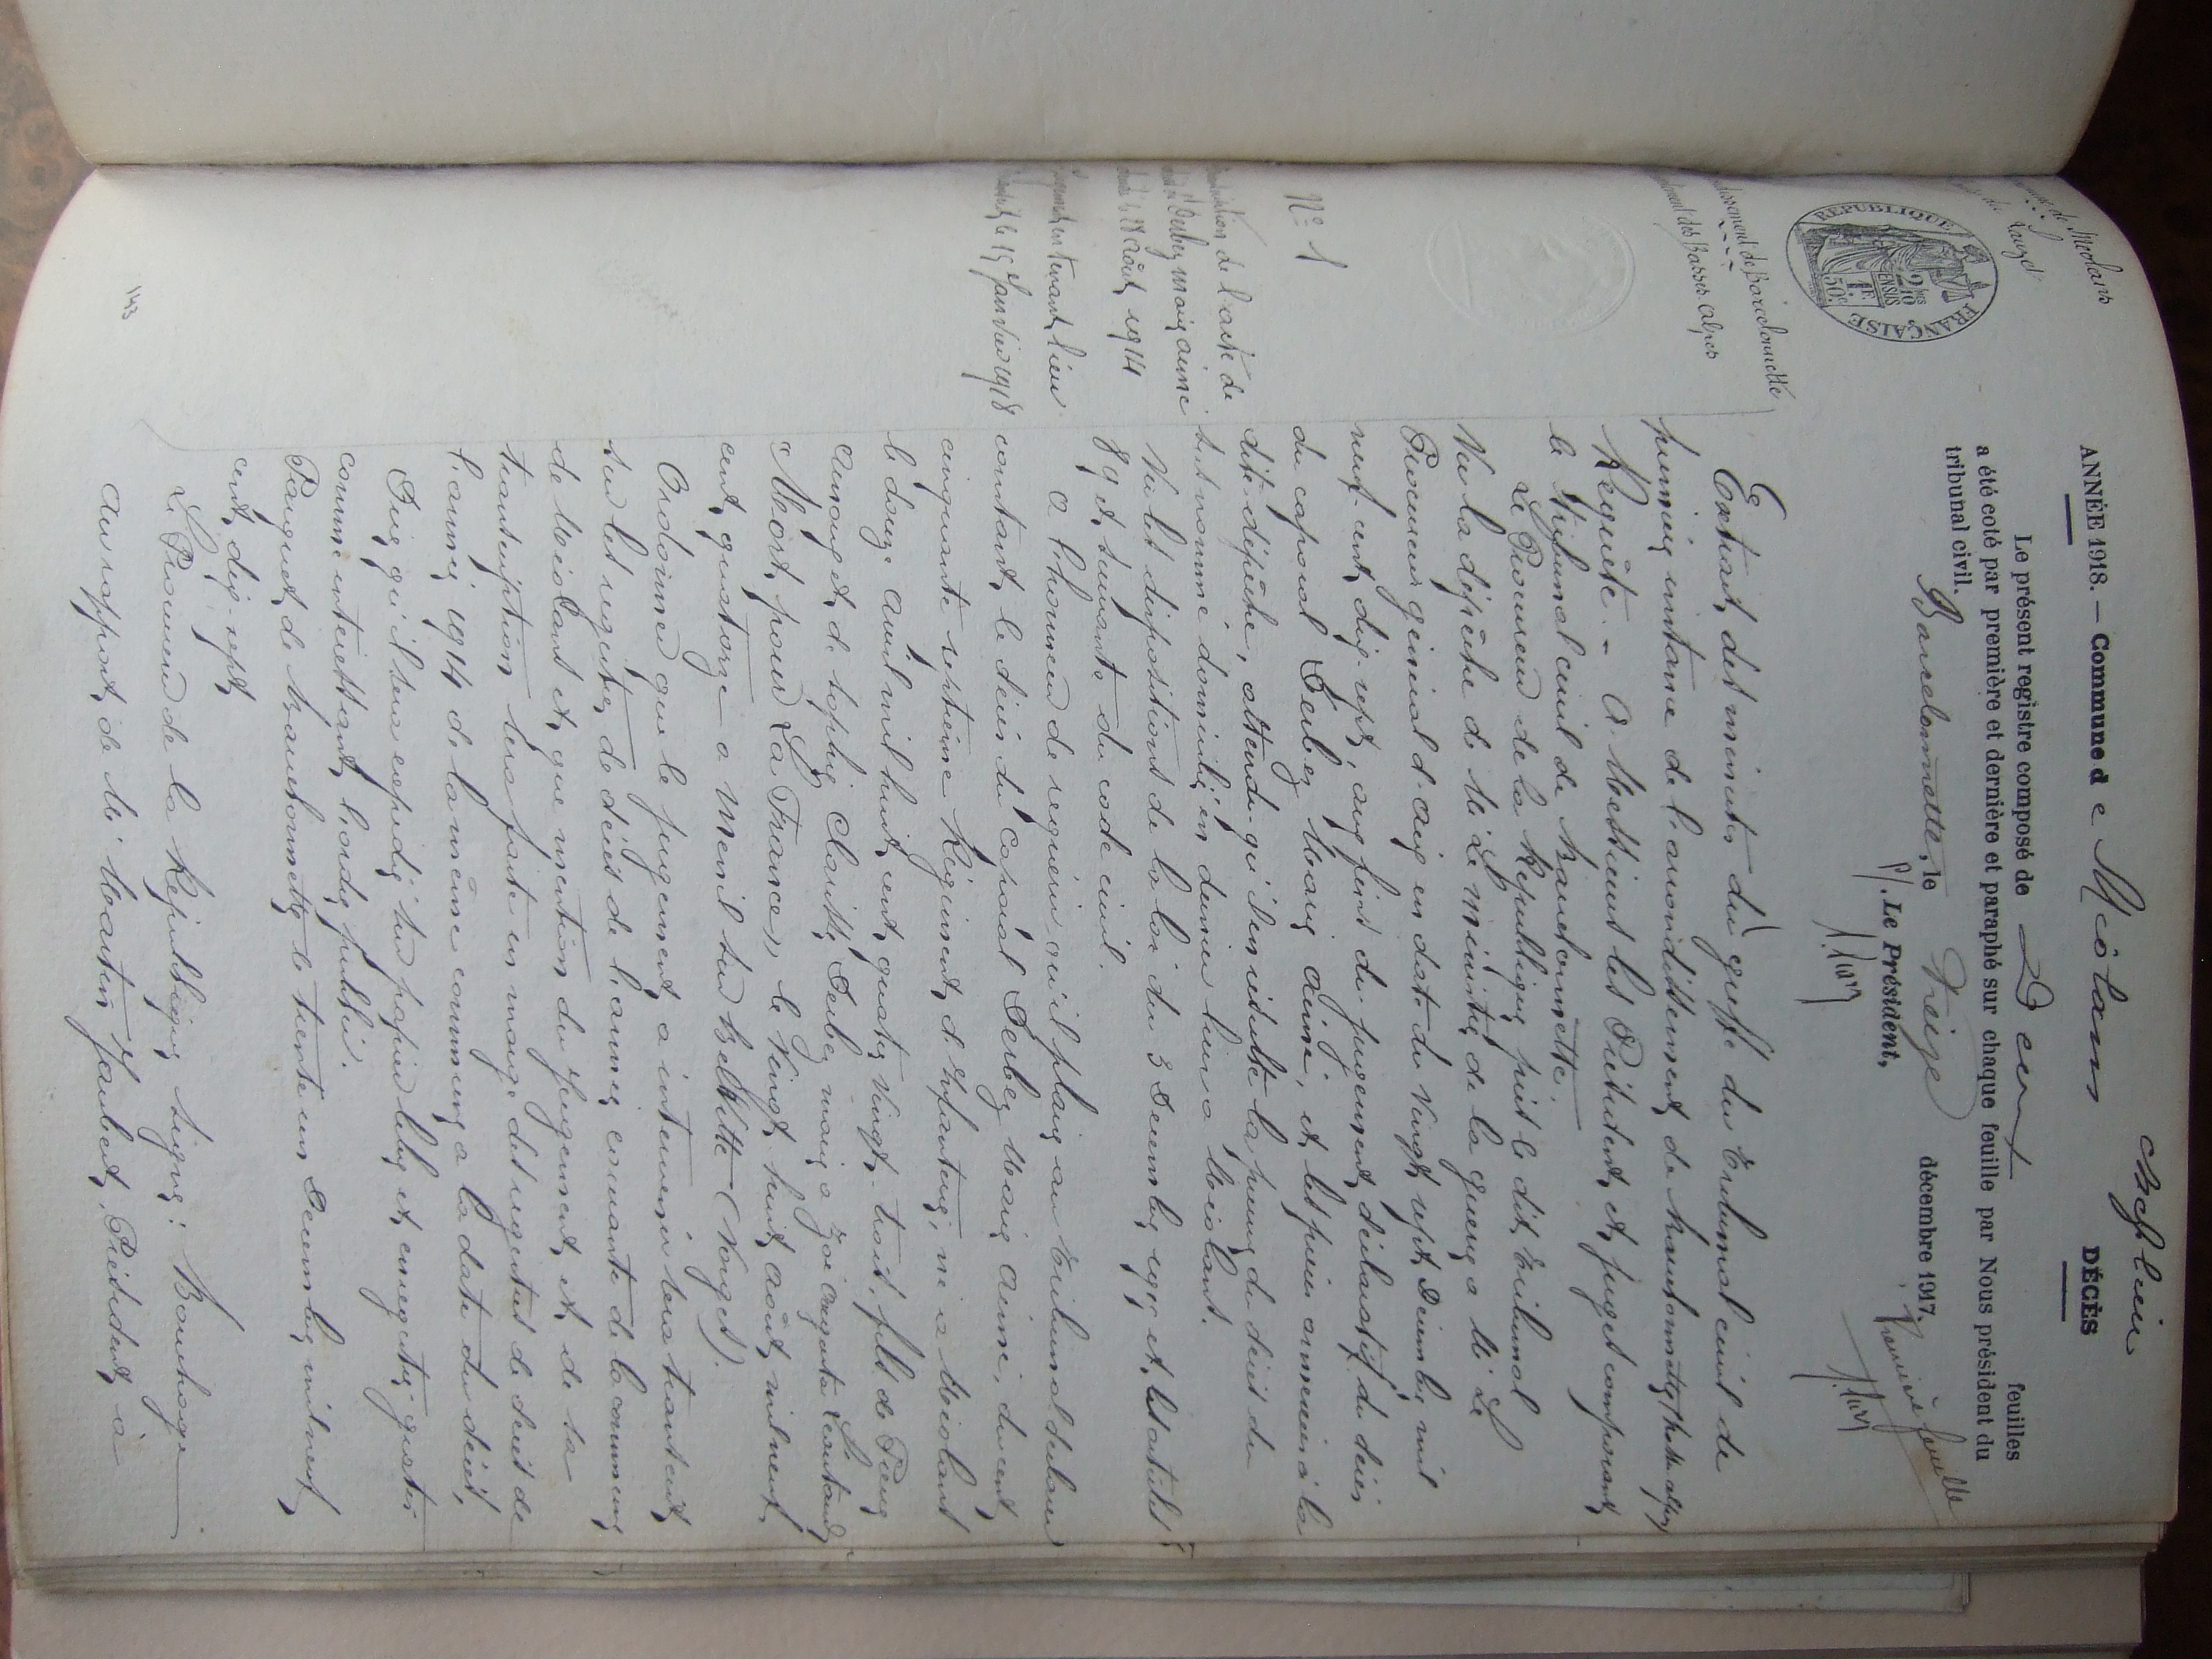 ANNÉE 1918. — Commune de Méolans DÉCÈS
Le présent registre composé de Deux feuilles
a été coté par première et dernière et paraphé sur chaque feuille par Nous président du
tribunal civil.
Barcelonnette, le Treize décembre 1917.
Première feuille
P/. Le Président,
Méolans
Lauzet
de Barcelonnette
des Basses Alpes
RÉPUBLIQUE FRANÇAISE
2/10 EN SUS
1F. 50c
N° 1
Transcription de l'acte de
Derbez Marie Aimé
28 août 1914
Jugement en tenant lieu
le 15 Janvier 1918
Extrait des minutes du greffe du Tribunal civil de
première instance de l'arrondissement de Barcelonnette, Basses Alpes
Requête. - A Messieurs les Président et Juges composant
le Tribunal civil de Barcelonnette.
Le Procureur de la République près le dit Tribunal
Vu la dépêche de Mr Le Ministre de la guerre a Mr Le
Procureur général d'aix en date du vingt sept Décembre mil
neuf cent dix sept, aux fins du jugement déclaratif du décès
du caporal Derbez Marie Aimé, et les pièces annexées à la
dite dépêche, attendu qu'il en résulte la preuve du décès du
susnommé domicilié en dernier lieu a Méolans.
Vu les dispositions de la loi du 3 Décembre 1915 et les articles
89 et suivants du code civil.
a l'honneur de requérir qu'il plaise au Tribunal déclarer
constant le décès du caporal Derbez Marie Aimé, du cent
cinquante septième Régiment d'Infanterie, né a Méolans
le douze avril mil huit cent quatre vingt trois, fils de Pierre
Arnoux et de Sophie Clarisse Derbez, marié a Zoé Augusta Léautaud,
"Mort pour La France", le vingt huit août mil neuf
cent quatorze a Menil sur Belvitte (Vosges).
Ordonner que le jugement a intervenir sera transcrit
sur les registres de décès de l'année courante de la commune
de Méolans et que mention du jugement et de sa
transcription sera faite en marge des registres de décès de
l'année 1914 de la même commune a la date du décès,
Dire qu'il sera expédié sur papier libre et enregistré gratis
comme intéressant l'ordre public.
Parquet de Barcelonnette le trente un Décembre mil neuf
cent dix sept
Le Procureur de la République signé: Bonthoux
Au rapport de Mr Martin Jaubert, Président, à
143